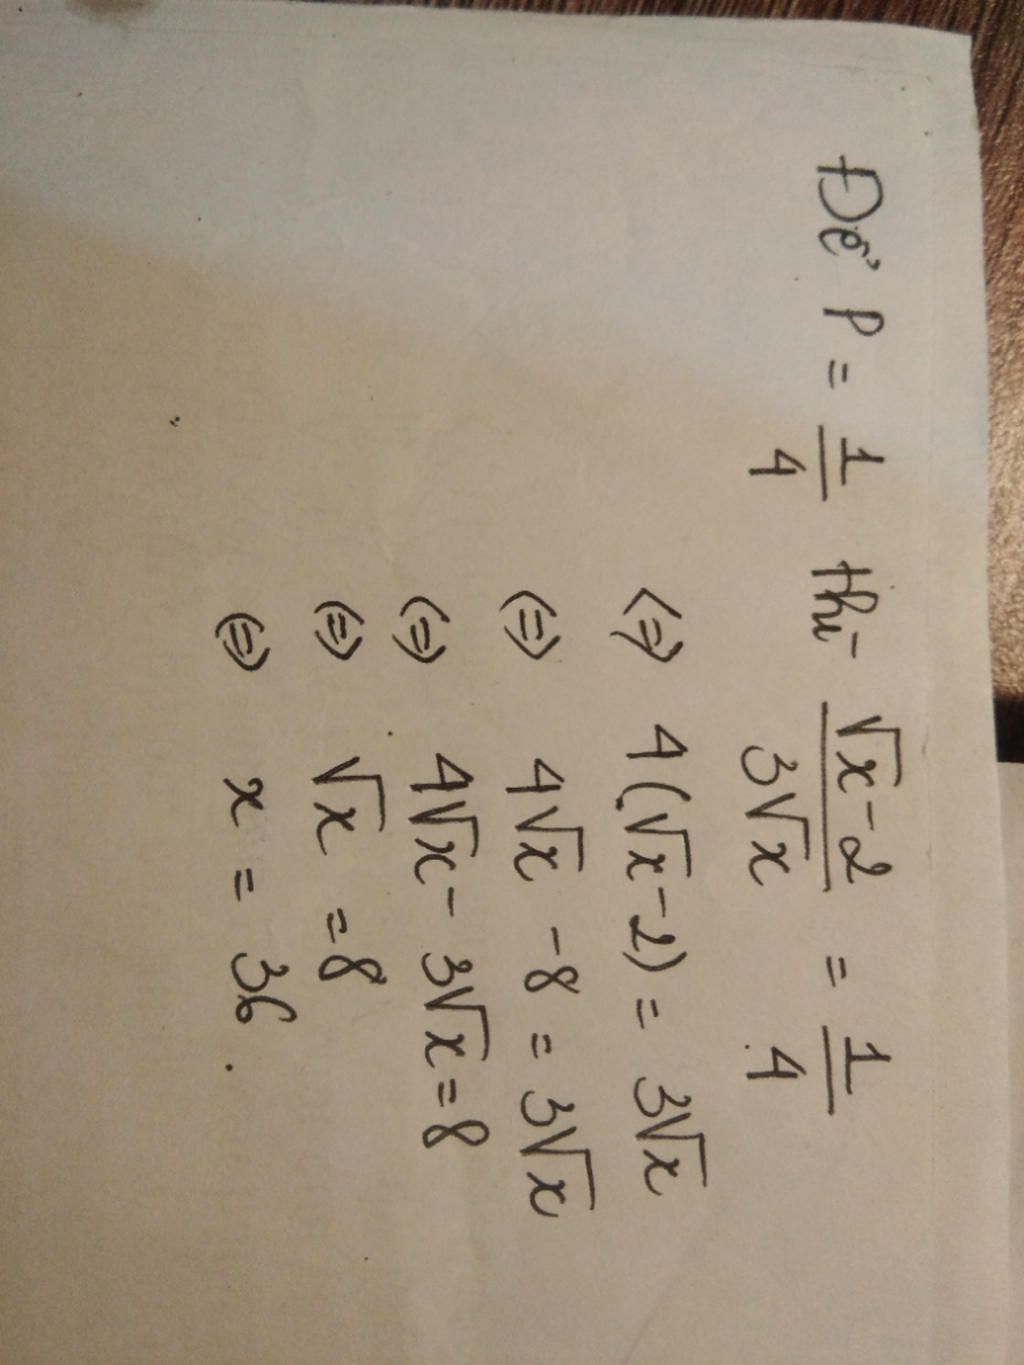 Để P = 1/4 thì (√x - 2)/(3√x) = 1/4
<=> 4(√x - 2) = 3√x
<=> 4√x - 8 = 3√x
<=> 4√x - 3√x = 8
<=> √x = 8
<=> x = 36.